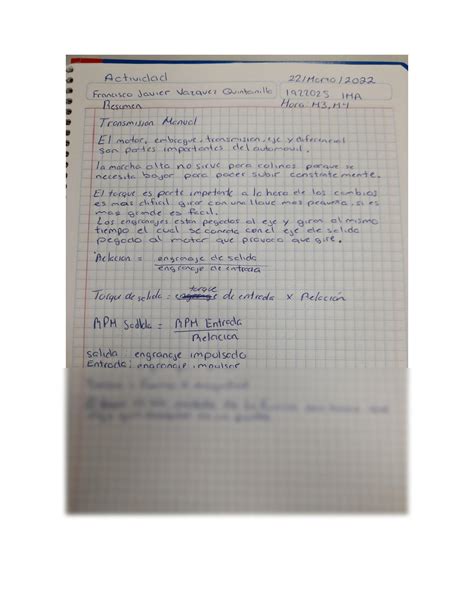 Actividad 22/Marzo/2022
Francisco Javier Vazquez Quintanilla 1922025 IMA
Resumen Hora M3, M4
Transmision Manual
El motor, embrague, transmision, eje y diferencial
son partes importantes del automovil.
la marcha alta no sirve para colinas porque se
necesita bajar para poder subir constantemente.
El torque es parte importante a la hora de los cambios
es mas dificil girar con un llave mas pequeña, si es
mas grande es facil.
Los engranajes estan pegados al eje y giran al mismo
tiempo el cual se conecta con el eje de salida
pegado al motor que provoca que gire.
Relacion = engranaje de salida
engranaje de entrada
torque
Torque de salida = de entrada x Relación
RPM Salida = RPM Entrada
Relacion
salida: engranaje impulsado
Entrada: engranaje impulsor